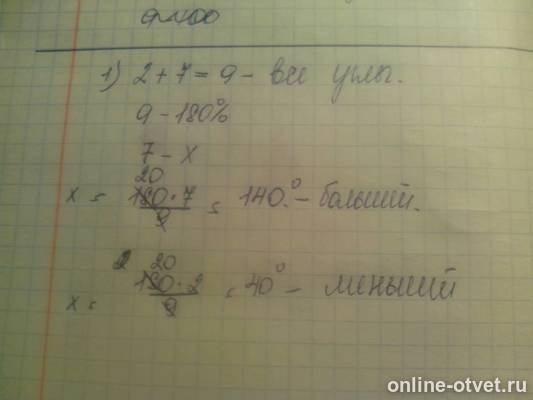 1) 2 + 7 = 9 - все углы.
9 - 180%
7 - x
20
x = 180 · 7 / 9 = 140.° - больший.
2 20
x = 180 · 2 / 9 = 40° - меньший
online-otvet.ru